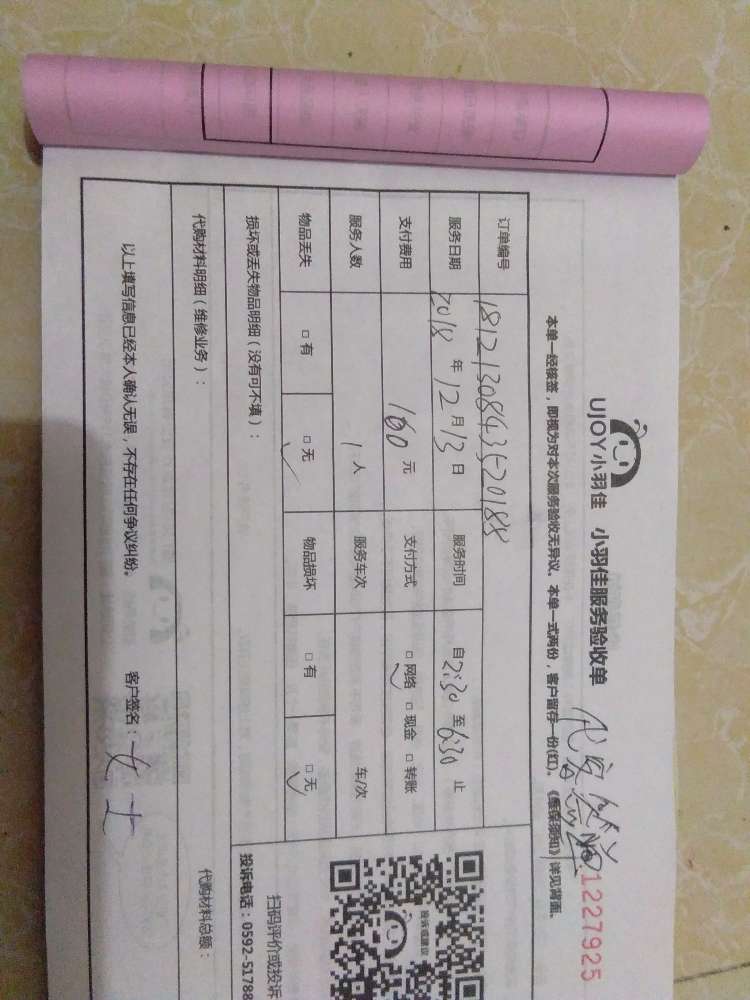 UJOY小羽佳 小羽佳服务验收单
No.1227925
本单一经核签，即视为对本次服务验收无异议。本单一式两份，客户留存一份(红)。《维保须知》详见背面。
订单编号 18121308435-20188
服务日期 2018年12月13日 服务时间 自2:30至6:30止
支付费用 160元 支付方式 □网络 □现金 □转账
服务人数 1人 服务车次 车/次
物品丢失 □有 □无 物品损坏 □有 □无
损坏或丢失物品明细（没有可不填）：
投诉或建议
扫码评价或投诉
投诉电话：0592-51788
代购材料明细（维修业务）： 代购材料总额：
以上填写信息已经本人确认无误，不存在任何争议纠纷。 客户签名：女士